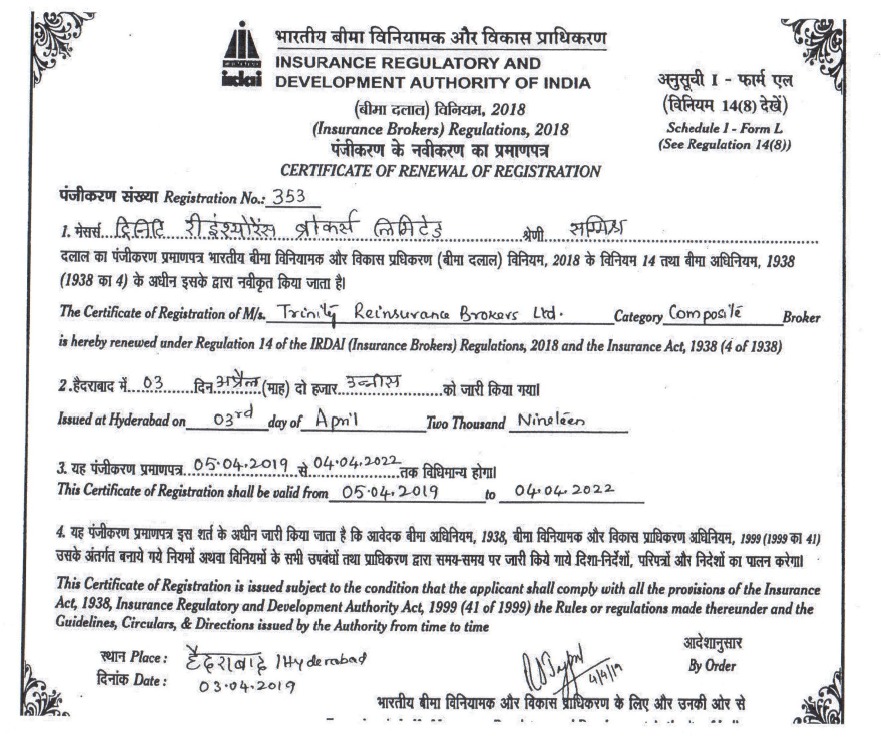 भारतीय बीमा विनियामक और विकास प्राधिकरण
INSURANCE REGULATORY AND
DEVELOPMENT AUTHORITY OF INDIA
irdai
(बीमा दलाल) विनियम, 2018
(Insurance Brokers) Regulations, 2018
पंजीकरण के नवीकरण का प्रमाणपत्र
CERTIFICATE OF RENEWAL OF REGISTRATION
अनुसूची I - फार्म एल
(विनियम 14(8) देखें)
Schedule I - Form L
(See Regulation 14(8))
पंजीकरण संख्या Registration No.: 353
1. मेसर्स ट्रिनिटि रीइंश्योरेंस ब्रोकर्स लिमिटेड श्रेणी सम्मिश्र
दलाल का पंजीकरण प्रमाणपत्र भारतीय बीमा विनियामक और विकास प्रधिकरण (बीमा दलाल) विनियम, 2018 के विनियम 14 तथा बीमा अधिनियम, 1938
(1938 का 4) के अधीन इसके द्वारा नवीकृत किया जाता है।
The Certificate of Registration of M/s. Trinity Reinsurance Brokers Ltd. Category Composite Broker
is hereby renewed under Regulation 14 of the IRDAI (Insurance Brokers) Regulations, 2018 and the Insurance Act, 1938 (4 of 1938)
2. हैदराबाद में 03 दिन अप्रैल (माह) दो हजार उन्नीस को जारी किया गया।
Issued at Hyderabad on 03rd day of April Two Thousand Nineteen
3. यह पंजीकरण प्रमाणपत्र 05.04.2019 से 04.04.2022 तक विधिमान्य होगा।
This Certificate of Registration shall be valid from 05.04.2019 to 04.04.2022
4. यह पंजीकरण प्रमाणपत्र इस शर्त के अधीन जारी किया जाता है कि आवेदक बीमा अधिनियम, 1938, बीमा विनियामक और विकास प्राधिकरण अधिनियम, 1999 (1999 का 41)
उसके अंतर्गत बनाये गये नियमों अथवा विनियमों के सभी उपबंधों तथा प्राधिकरण द्वारा समय-समय पर जारी किये गाये दिशा-निर्देशों, परिपत्रों और निदेशों का पालन करेगा।
This Certificate of Registration is issued subject to the condition that the applicant shall comply with all the provisions of the Insurance
Act, 1938, Insurance Regulatory and Development Authority Act, 1999 (41 of 1999) the Rules or regulations made thereunder and the
Guidelines, Circulars, & Directions issued by the Authority from time to time
स्थान Place : हैदराबाद / Hyderabad
दिनांक Date : 03.04.2019
4/4/19
आदेशानुसार
By Order
भारतीय बीमा विनियामक और विकास प्राधिकरण के लिए और उनकी ओर से